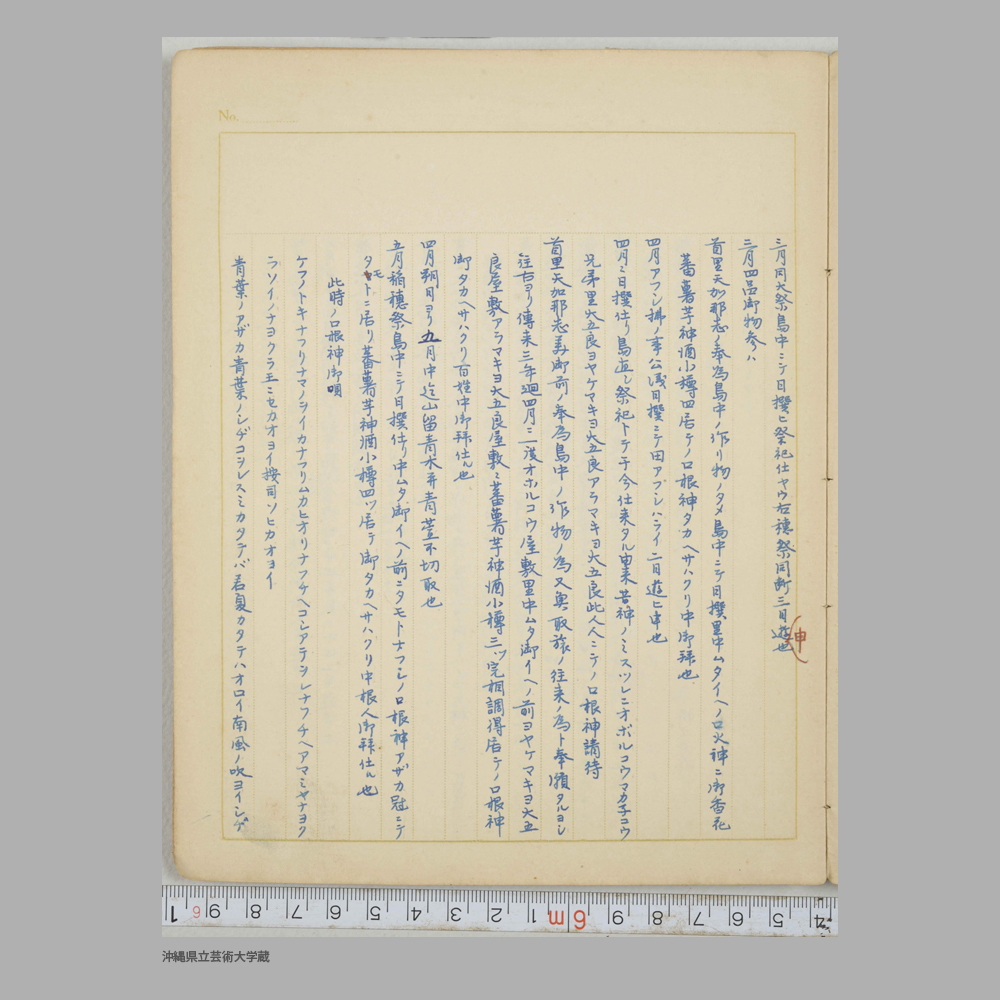 No.
三月同大祭島中ニテ日撰ヒ祭祀仕ヤウ右穂祭同断三日遊申也
三月四品御物参ハ
首里天加那志ノ奉為島中ノ作リ物ノタメ島中ニテ日撰里中ムタイヘノロ火神ニ御香花
蕃薯芋神酒小樽四居テノロ根神タカヘサハクリ中御拜也
四月アフシ拂ノ事公儀日撰ニテ田アブシハライ二日遊ヒ申也
四月ミ日撰仕リ島直シ祭祀トテ于今仕来タル由来昔神ノミスツレニオボルコウマカチコウ
兄弟里大五良ヨヤケマキヨ大五良アラマキヨ大五良此人人ニテノロ根神請待
首里天加那志美御前ノ奉為島中ノ作物ノ為又奥取旅ノ往来ノ為ト奉願タルヨシ
往古ヨリ傳来三年廻四月ニ一度オホルコウ屋敷里中ムタ御イヘノ前ヨヤケマキヨ大五
良屋敷アラマキヨ大五良屋敷ミ蕃薯芋神酒小樽三ツ完相調得居テノロ根神
御タカヘサハクリ百姓中御拜仕ル也
四月朔日ヨリ五月中迄山留青木并青萱不切取也
五月稲穂祭島中ニテ日撰仕リ中ムタ御イヘノ前ニタモトナフシノロ根神アザカ冠ニテ
タモトニ居リ蕃薯芋神酒小樽四ツ居テ御タカヘサハクリ中根人御拜仕ル也
此時ノロ根神御唄
ケフノトキナフリナマノヲイカナフリムカヒオリナフチヘコシアテヲレナフチヘアマミヤナヨク
ラソイノナヨクラ王ニセカオヨイ按司ソヒカオヨイ
青葉ノアザカ青葉ノシヂコヲレスミカタテバ若夏カタテハオロイ南風ノ吹ヨイシヂ
1 9 8 7 6 5 4 3 2 1 6m 9 8 7 6 5 4
沖縄県立芸術大学蔵